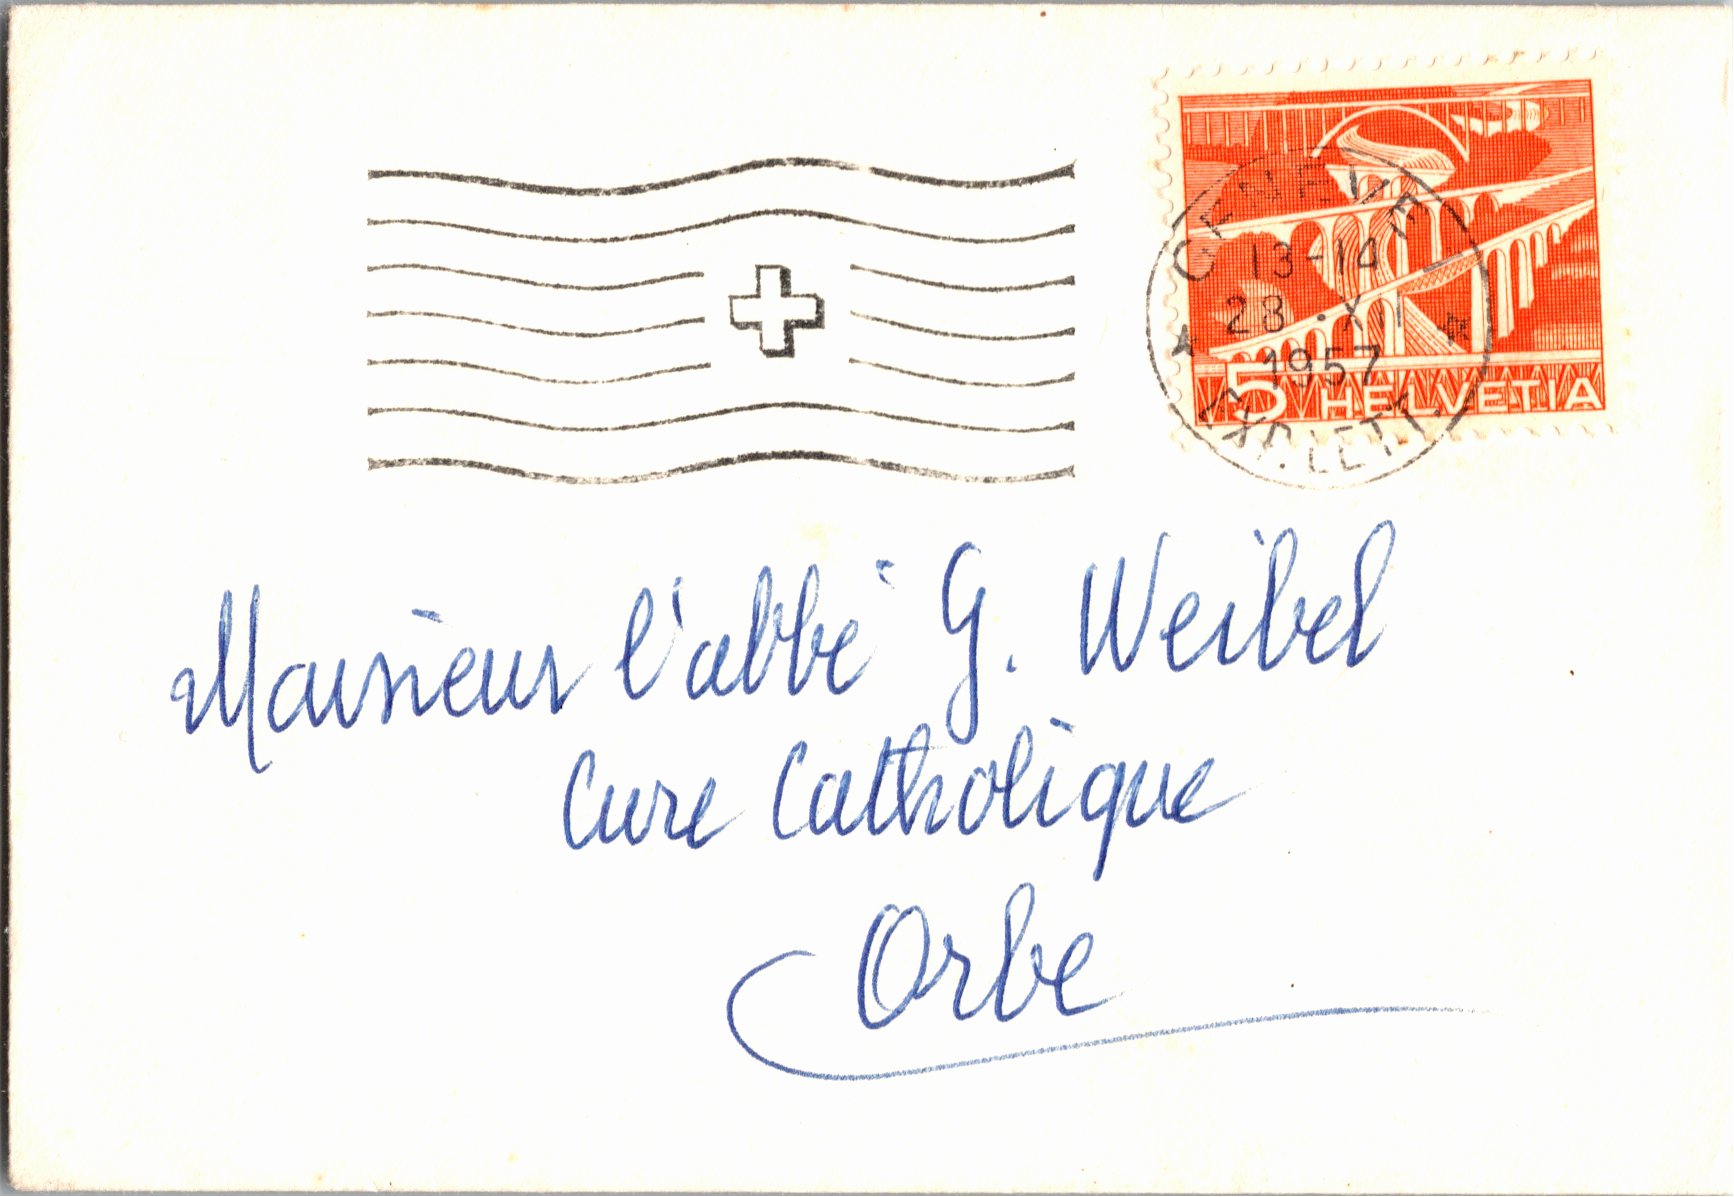 GENÈVE
13-14
28.XII
1957
EXP. LETT.
5 HELVETIA
Monsieur l'abbé G. Weibel
Cure Catholique
Orbe